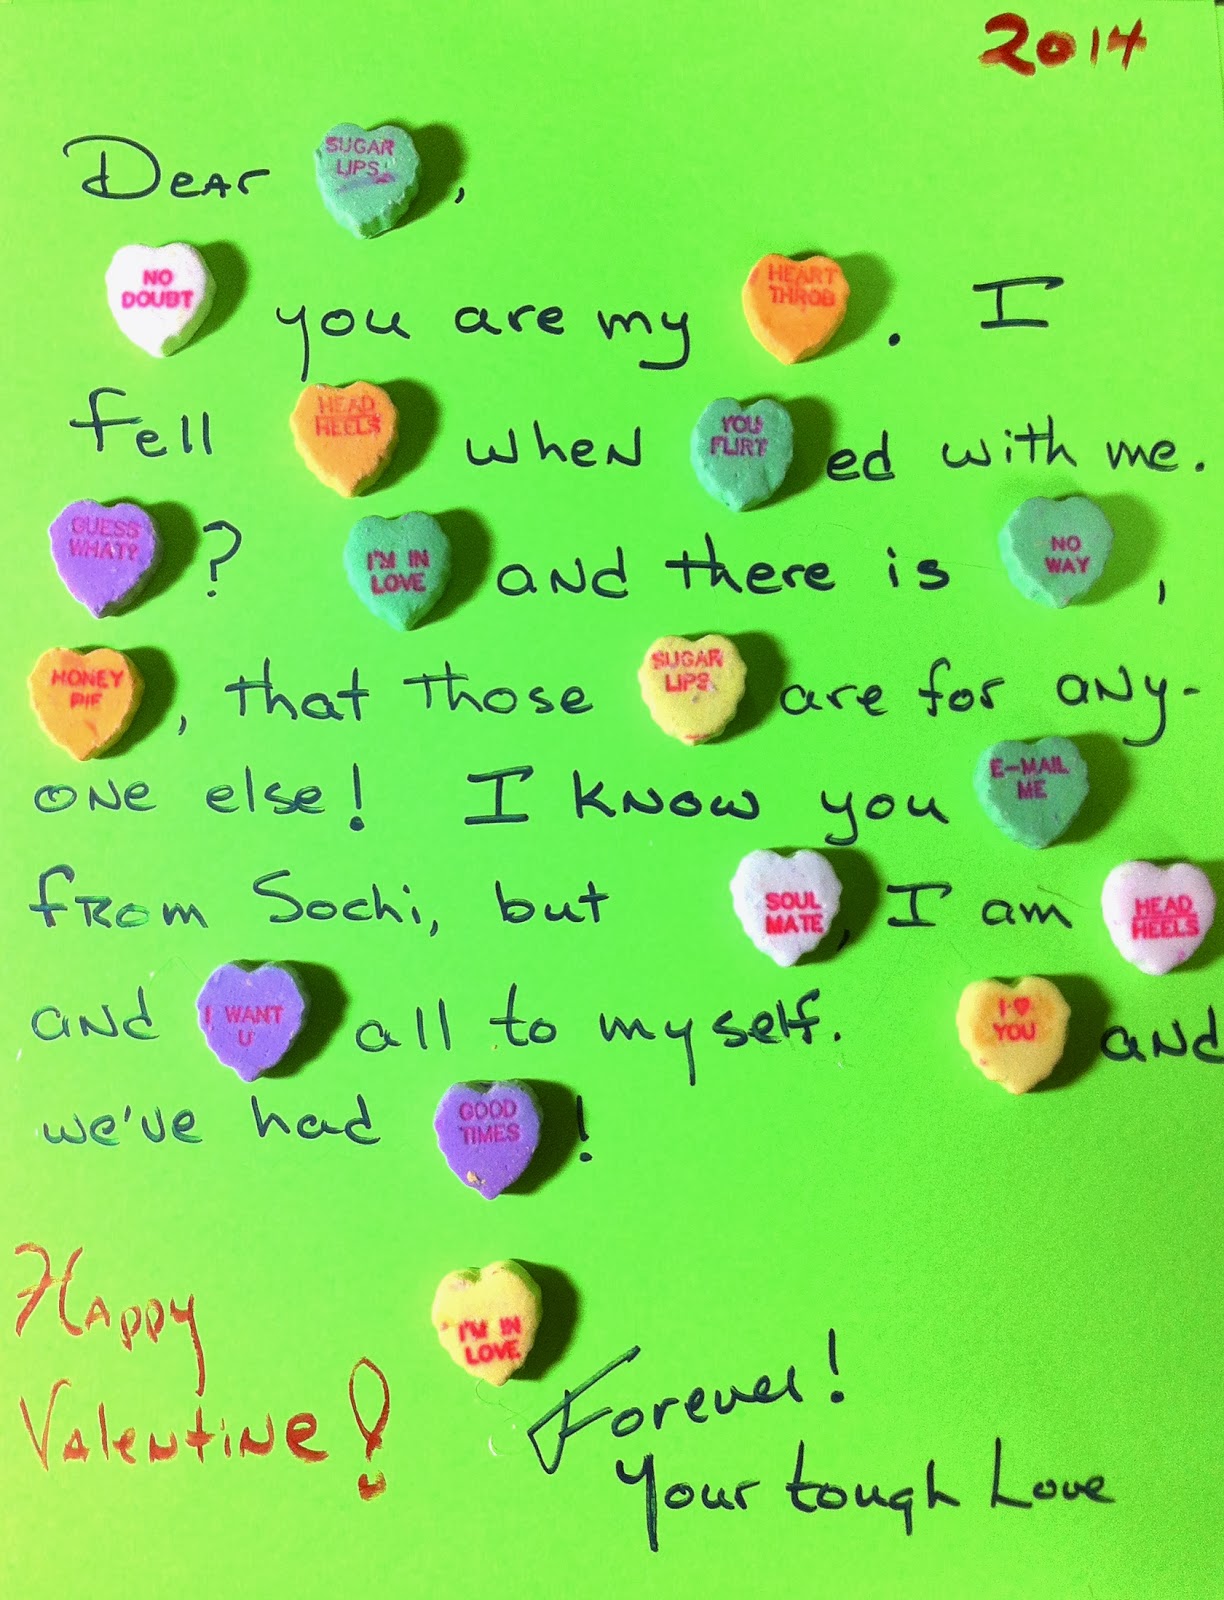 2014
Dear SUGAR LIPS,
NO DOUBT you are my HEART THROB. I
fell HEAD HEELS when YOU FLIRT ed with me.
GUESS WHAT? ? I'M IN LOVE and there is NO WAY,
HONEY PIE, that those SUGAR LIPS are for any-
one else! I know you E-MAIL ME
from Sochi, but SOUL MATE, I am HEAD HEELS
and I WANT U all to myself. I ♥ YOU and
we've had GOOD TIMES!
Happy
Valentine!
I'M IN LOVE
Forever!
Your tough Love